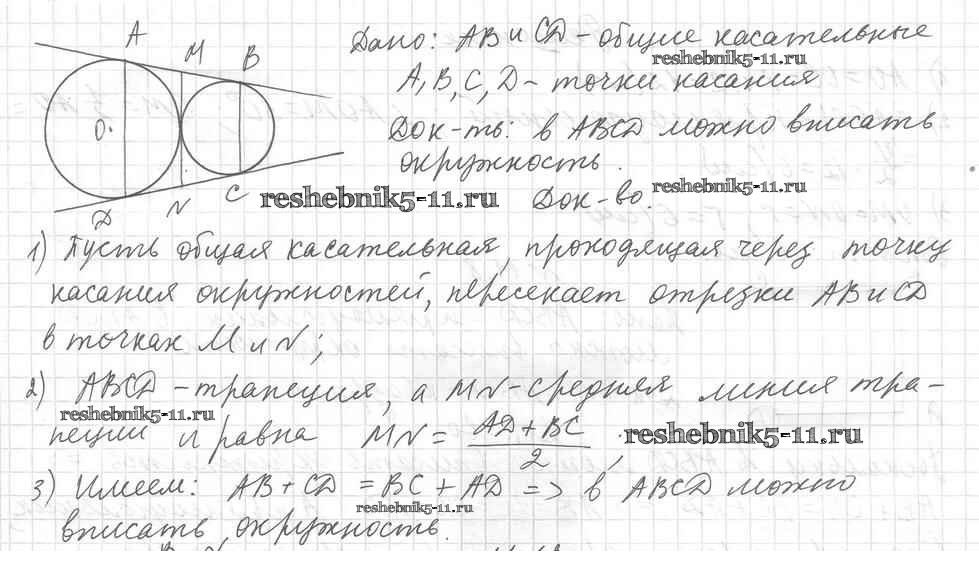 A
M
B
O
D
N
C
Дано: AB и CD - общие касательные
reshebnik5-11.ru
A, B, C, D - точки касания
Док-ть: в ABCD можно вписать
окружность.
reshebnik5-11.ru
reshebnik5-11.ru
Док-во.
1) Пусть общая касательная, проходящая через точку
касания окружностей, пересекает отрезки AB и CD
в точках M и N;
2) ABCD - трапеция, а MN - средняя линия тра-
reshebnik5-11.ru
пеции и равна MN = AD + BC / 2,
reshebnik5-11.ru
3) Имеем: AB + CD = BC + AD => в ABCD можно
reshebnik5-11.ru
вписать окружность.